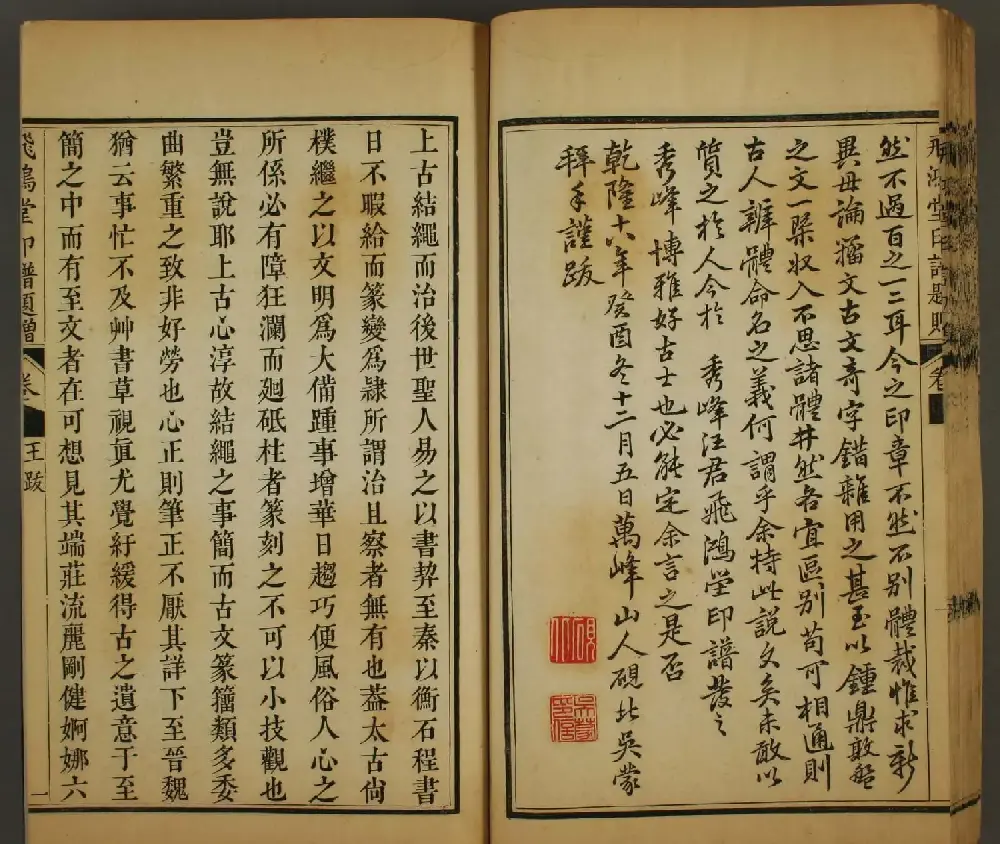 然不過百之一二耳今之印章不然不別體裁惟求新
異毋論籀文古文奇字錯雜用之甚至以鍾鼎敦槃
之文一槩収入不思諸體井然各宜區別苟可相通則
古人辨體命名之義何謂乎余持此說久矣未敢以
質之於人今於 秀峰汪君飛鴻堂印譜發之
秀峰博雅好古士也必能定余言之是否
乾隆十八年癸酉冬十二月五日萬峰山人硯北吳蒙
拜手謹跋
上古結繩而治後世聖人易之以書契至秦以衡石程書
日不暇給而篆變爲隷所謂治且察者無有也葢太古尙
樸繼之以文明爲大備踵事增華日趨巧便風俗人心之
所係必有障狂瀾而廻砥柱者篆刻之不可以小技觀也
豈無說耶上古心淳故結繩之事簡而古文篆籀類多委
曲繁重之致非好勞也心正則筆正不厭其詳下至晉魏
猶云事忙不及艸書草視眞尤覺紆緩得古之遺意于至
簡之中而有至文者在可想見其端莊流麗剛健婀娜六
飛鴻堂印譜題贈
王跋
一